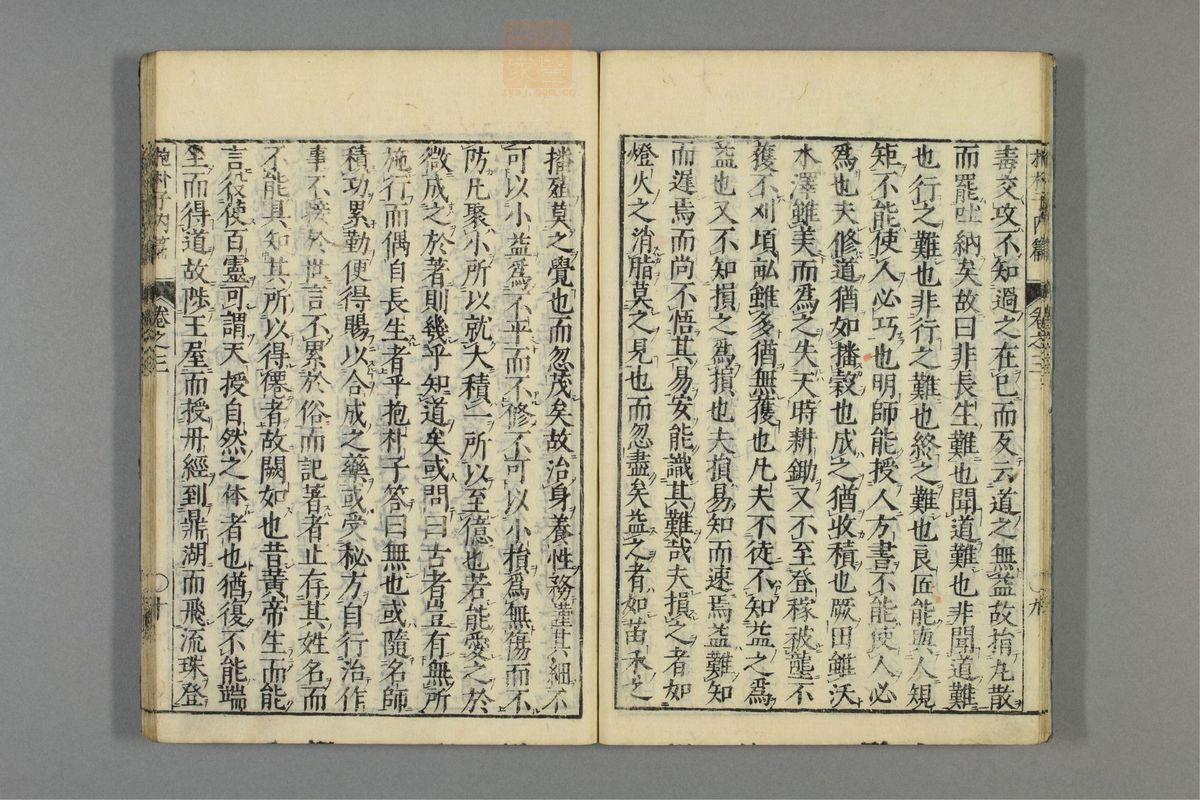 抱朴子内篇 卷之三 九
毒交攻不知過之在已而反云道之無益故指丸散
而罷吐納矣故曰非長生難也聞道難也非聞道難
也行之難也非行之難也終之難也良匠能與人規
矩不能使人必巧也明師能授人方書不能使人必
爲也夫修道猶如播穀也成之猶收積也厥田雖沃
水澤雖美而爲之失天時耕鋤又不至登稼被壟不
穫不刈頃畝雖多猶無獲也凡夫不徒不知益之爲
益也又不知損之爲損也夫損易知而速焉益難知
而遲焉而尚不悟其易安能識其難哉夫損之者如
燈火之消脂莫之見也而忽盡矣益之者如苗禾之
播殖莫之覺也而忽茂矣故治身養性務謹其細不
可以小益爲不平而不修不可以小損爲無傷而不
防凡聚小所以就大積一所以至億也若能愛之於
微成之於著則幾乎知道矣或問曰古者豈有無所
施行而偶自長生者乎抱朴子答曰無也或隨名師
積功累勤便得賜以合成之藥或受秘方自行治作
事不接於世言不累於俗而記著者止存其姓名而
不能具知其所以得僊者故闕如也昔黃帝生而能
言役使百靈可謂天授自然之体者也猶復不能端
坐而得道故陟王屋而授丹經到鼎湖而飛流珠登
抱朴子内篇 卷之三 十